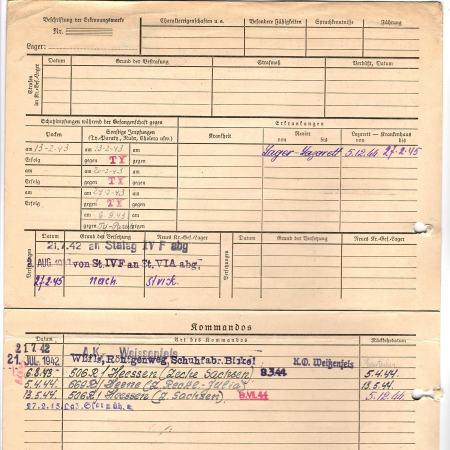 Beschriftung der Erkennungsmarke
Nr.
Lager:
Charaktereigenschaften u. a.
Besondere Fähigkeiten
Sprachkenntnisse
Führung
Strafen im Kr.-Gef.-Lager
Datum
Grund der Bestrafung
Strafmaß
Verbüßt, Datum
Schutzimpfungen während der Gefangenschaft gegen
Erkrankungen
Pocken
Sonstige Impfungen
(Ty.-Paraty., Ruhr, Cholera usw.)
Krankheit
Revier
von bis
Lazarett — Krankenhaus
von bis
am 13-2-43 am 13-2-43 am
Lager-Lazarett 5.12.44 27-2-45
Erfolg gegen TY gegen
am am 20-2-43 am
Erfolg gegen TY gegen
am am 27-2-43 am
Erfolg gegen TY gegen
am am 6.9.43 am
Erfolg gegen gegen
Versetzungen
Datum
Grund der Versetzung
Neues Kr.-Gef.-Lager
Versetzungen
Datum
Grund der Versetzung
Neues Kr.-Gef.-Lager
21.7.42 an Stalag IV F abg
AUG von St.IVF an St.VIA abg.
27.2.45 nach
Kommandos
Datum
Art des Kommandos
Rückkehrdatum
21 7. 42 A.K. Weissenfels
21. JUL. 1942 Röntgenweg, Schuhfabr. K.O. Weißenfels
6.8.43 - 506 R 1 Heessen (Zeche Sachsen) 8.3.44 5.4.44
5.4.44. 13.5.44
13.5.44 506 R 1 Heessen (Z. Sachsen) 5.12.44
27.2.45